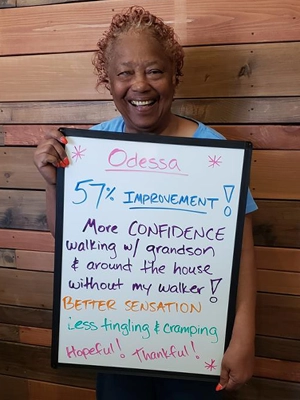 Odessa
57% IMPROVEMENT!
More CONFIDENCE
walking w/ grandson
& around the house
without my walker!
BETTER SENSATION
Less tingling & cramping
Hopeful! Thankful!